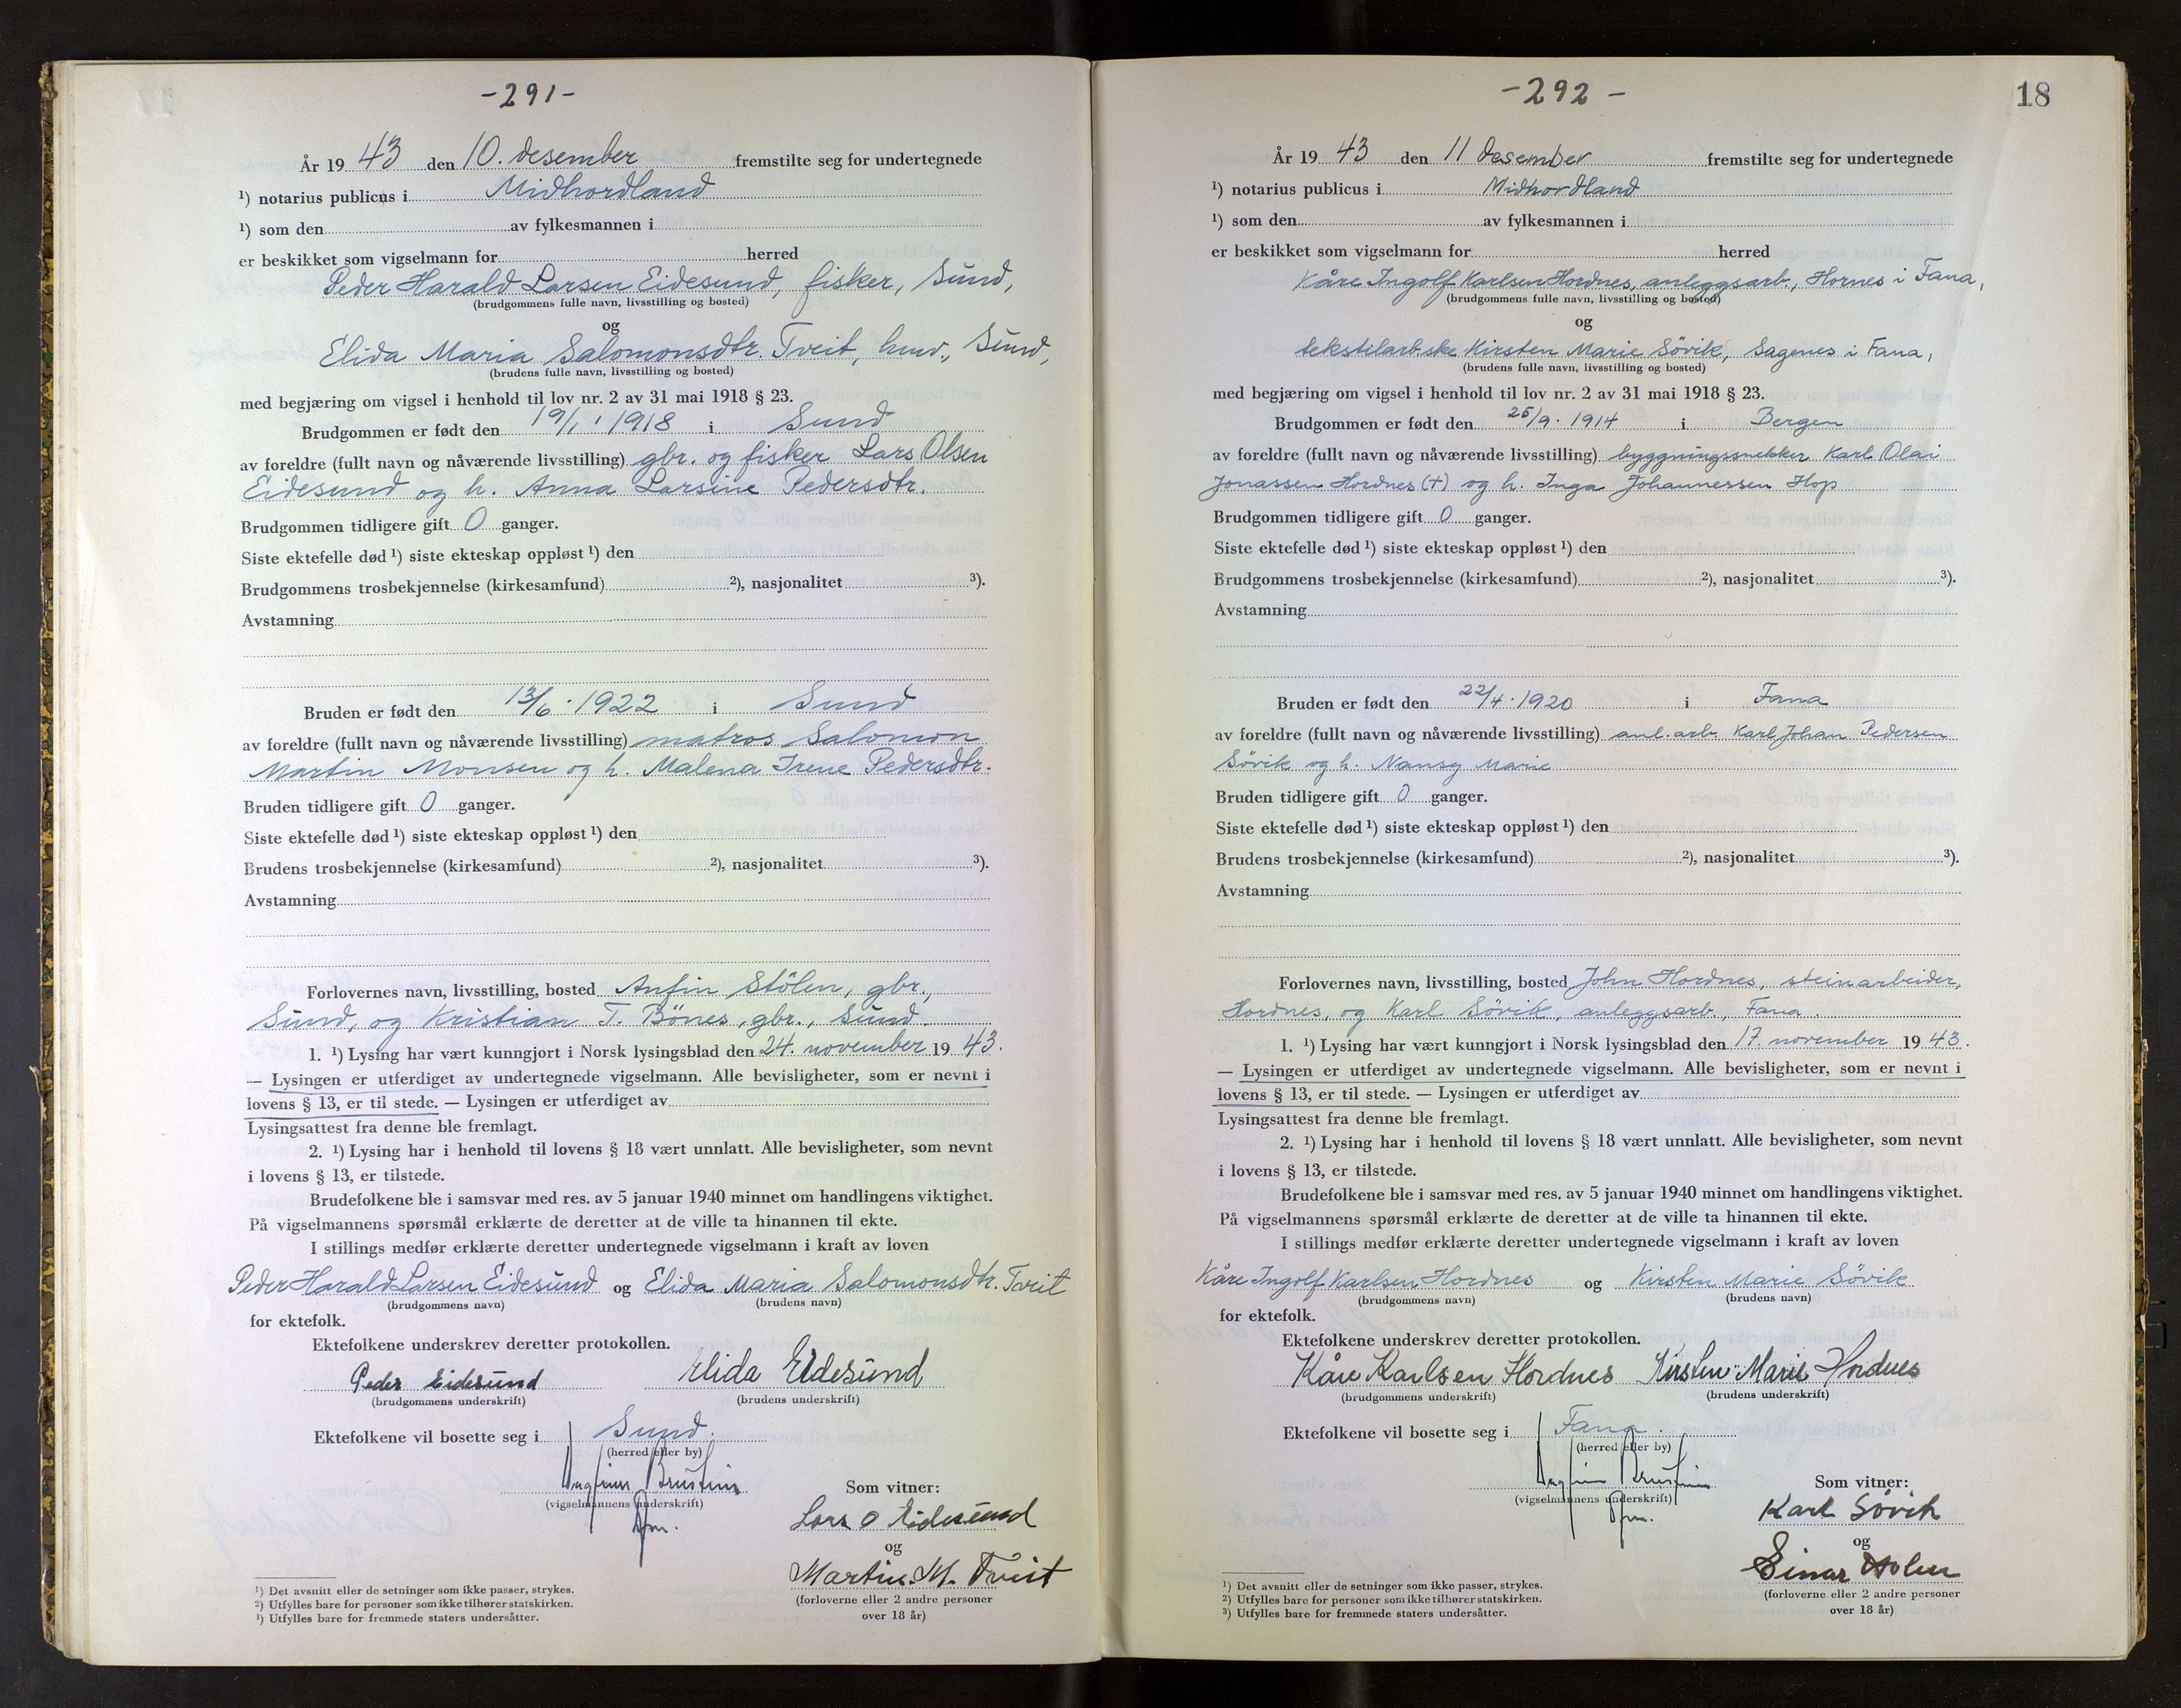 -291-
År 19 43 den 10. desember fremstilte seg for undertegnede
¹) notarius publicus i Midhordland
¹) som den av fylkesmannen i
er beskikket som vigselmann for herred
Peder Harald Larsen Eidesund, fisker, Sund,
(brudgommens fulle navn, livsstilling og bosted)
og
Elida Maria Salomonsdtr. Tveit, husv., Sund,
(brudens fulle navn, livsstilling og bosted)
med begjæring om vigsel i henhold til lov nr. 2 av 31 mai 1918 § 23.
Brudgommen er født den 19/1 1918 i Sund
av foreldre (fullt navn og nåværende livsstilling) gbr. og fisker Lars Olsen
Eidesund og h. Anna Larsine Pedersdtr.
Brudgommen tidligere gift 0 ganger.
Siste ektefelle død ¹) siste ekteskap oppløst ¹) den
Brudgommens trosbekjennelse (kirkesamfund) ²), nasjonalitet ³).
Avstamning
Bruden er født den 13/6. 1922 i Sund
av foreldre (fullt navn og nåværende livsstilling) matros Salomon
Martin Monsen og h. Malena Irene Pedersdtr.
Bruden tidligere gift 0 ganger.
Siste ektefelle død ¹) siste ekteskap oppløst ¹) den
Brudens trosbekjennelse (kirkesamfund) ²), nasjonalitet ³).
Avstamning
Forlovernes navn, livsstilling, bosted Anfin Stölen, gbr.,
Sund, og Kristian T. Bönes, gbr., Sund.
1. ¹) Lysing har vært kunngjort i Norsk lysingsblad den 24. november 19 43.
— Lysingen er utferdiget av undertegnede vigselmann. Alle bevisligheter, som er nevnt i
lovens § 13, er til stede. — Lysingen er utferdiget av
Lysingsattest fra denne ble fremlagt.
2. ¹) Lysing har i henhold til lovens § 18 vært unnlatt. Alle bevisligheter, som nevnt
i lovens § 13, er tilstede.
Brudefolkene ble i samsvar med res. av 5 januar 1940 minnet om handlingens viktighet.
På vigselmannens spørsmål erklærte de deretter at de ville ta hinannen til ekte.
I stillings medfør erklærte deretter undertegnede vigselmann i kraft av loven
Peder Harald Larsen Eidesund og Elida Maria Salomonsdtr. Tveit
(brudgommens navn) (brudens navn)
for ektefolk.
Ektefolkene underskrev deretter protokollen.
Peder Eidesund Elida Eidesund
(brudgommens underskrift) (brudens underskrift)
Ektefolkene vil bosette seg i Sund.
(herred eller by)
(vigselmannens underskrift)
Som vitner:
Lars O Eidesund
og
Martin. M. Tveit
(forloverne eller 2 andre personer
over 18 år)
¹) Det avsnitt eller de setninger som ikke passer, strykes.
²) Utfylles bare for personer som ikke tilhører statskirken.
³) Utfylles bare for fremmede staters undersåtter.
-292-
18
År 19 43 den 11 desember fremstilte seg for undertegnede
¹) notarius publicus i Midhordland
¹) som den av fylkesmannen i
er beskikket som vigselmann for herred
Kåre Ingolf Karlsen Hordnes, anleggsarb., Hornes i Fana,
(brudgommens fulle navn, livsstilling og bosted)
og
tekstilarb.ske Kirsten Marie Sövik, Sagenes i Fana,
(brudens fulle navn, livsstilling og bosted)
med begjæring om vigsel i henhold til lov nr. 2 av 31 mai 1918 § 23.
Brudgommen er født den 25/9. 1914 i Bergen
av foreldre (fullt navn og nåværende livsstilling) byggningssnekker Karl Olai
Jonassen Hordnes (+) og h. Inga Johannessen Hop
Brudgommen tidligere gift 0 ganger.
Siste ektefelle død ¹) siste ekteskap oppløst ¹) den
Brudgommens trosbekjennelse (kirkesamfund) ²), nasjonalitet ³).
Avstamning
Bruden er født den 22/4. 1920 i Fana
av foreldre (fullt navn og nåværende livsstilling) anl. arb. Karl Johan Pedersen
Sövik og h. Nansy Marie
Bruden tidligere gift 0 ganger.
Siste ektefelle død ¹) siste ekteskap oppløst ¹) den
Brudens trosbekjennelse (kirkesamfund) ²), nasjonalitet ³).
Avstamning
Forlovernes navn, livsstilling, bosted John Hordnes, steinarbeider,
Hordnes, og Karl Sövik, anleggsarb., Fana.
1. ¹) Lysing har vært kunngjort i Norsk lysingsblad den 17. november 19 43.
— Lysingen er utferdiget av undertegnede vigselmann. Alle bevisligheter, som er nevnt i
lovens § 13, er til stede. — Lysingen er utferdiget av
Lysingsattest fra denne ble fremlagt.
2. ¹) Lysing har i henhold til lovens § 18 vært unnlatt. Alle bevisligheter, som nevnt
i lovens § 13, er tilstede.
Brudefolkene ble i samsvar med res. av 5 januar 1940 minnet om handlingens viktighet.
På vigselmannens spørsmål erklærte de deretter at de ville ta hinannen til ekte.
I stillings medfør erklærte deretter undertegnede vigselmann i kraft av loven
Kåre Ingolf Karlsen Hordnes og Kirsten Marie Sövik
(brudgommens navn) (brudens navn)
for ektefolk.
Ektefolkene underskrev deretter protokollen.
Kåre Karlsen Hordnes Kirsten Marie Hordnes
(brudgommens underskrift) (brudens underskrift)
Ektefolkene vil bosette seg i Fana.
(herred eller by)
(vigselmannens underskrift)
Som vitner:
Karl Sövik
og
Einar Holen
(forloverne eller 2 andre personer
over 18 år)
¹) Det avsnitt eller de setninger som ikke passer, strykes.
²) Utfylles bare for personer som ikke tilhører statskirken.
³) Utfylles bare for fremmede staters undersåtter.